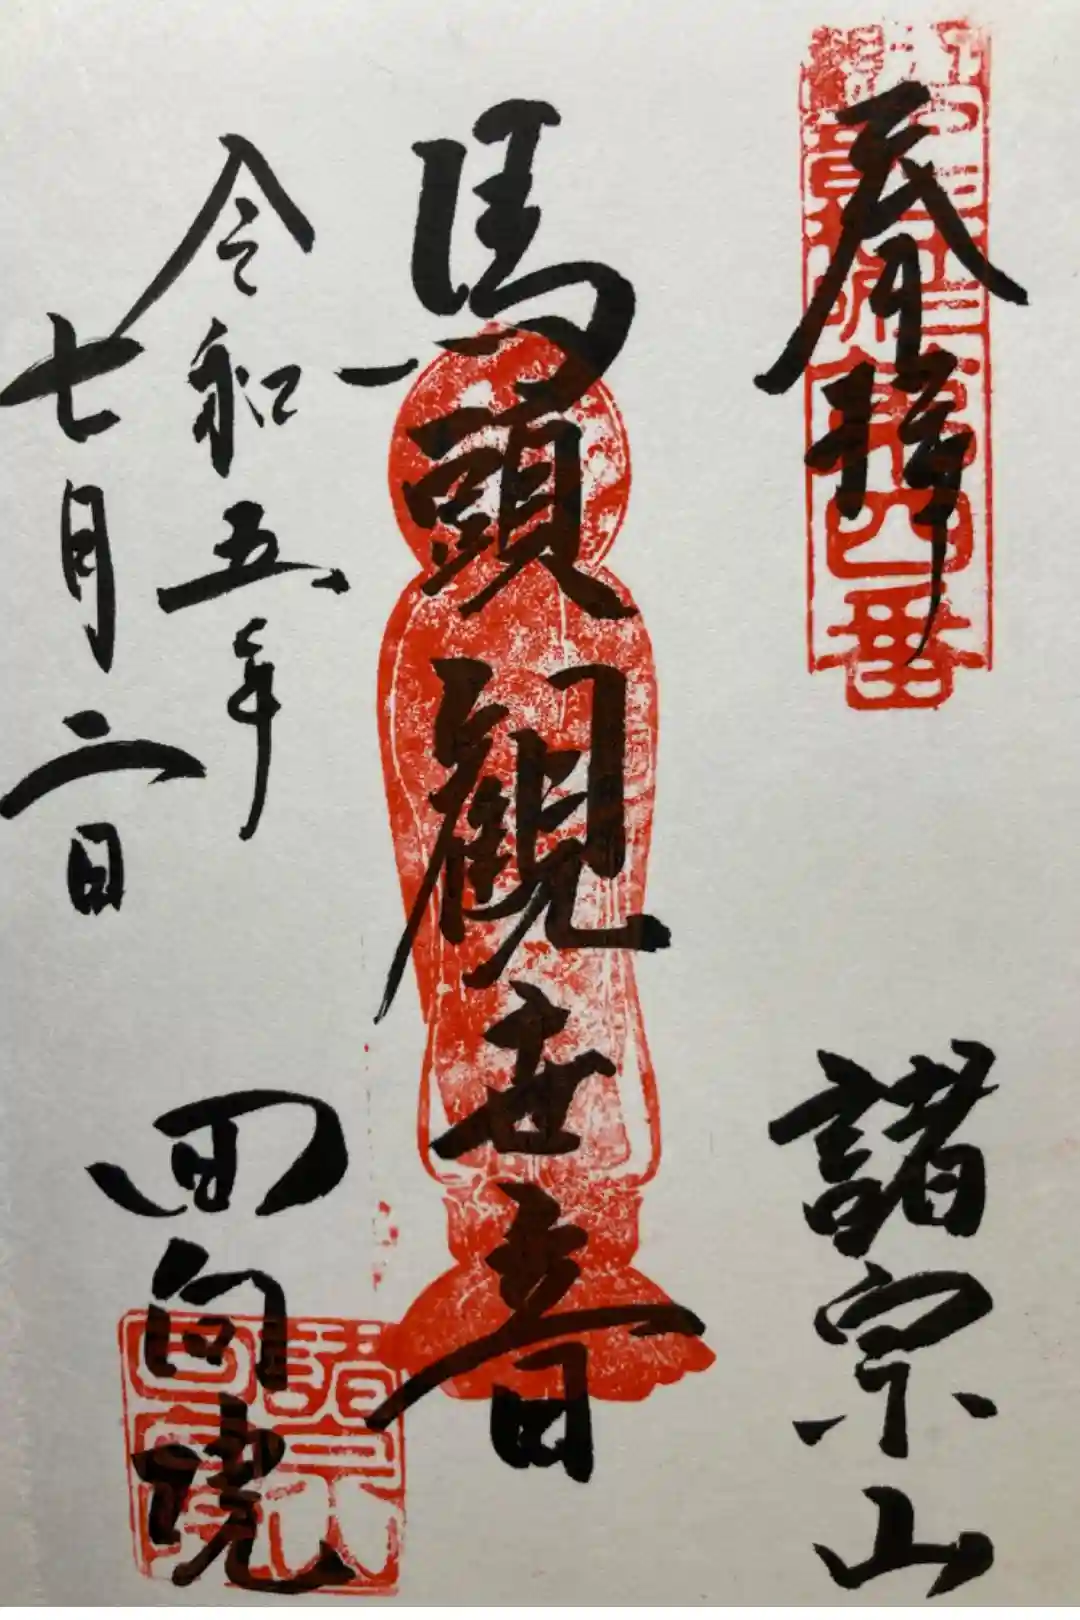 奉拝
諸宗山
馬頭觀世音
令和五年
七月二日
回向院
四番